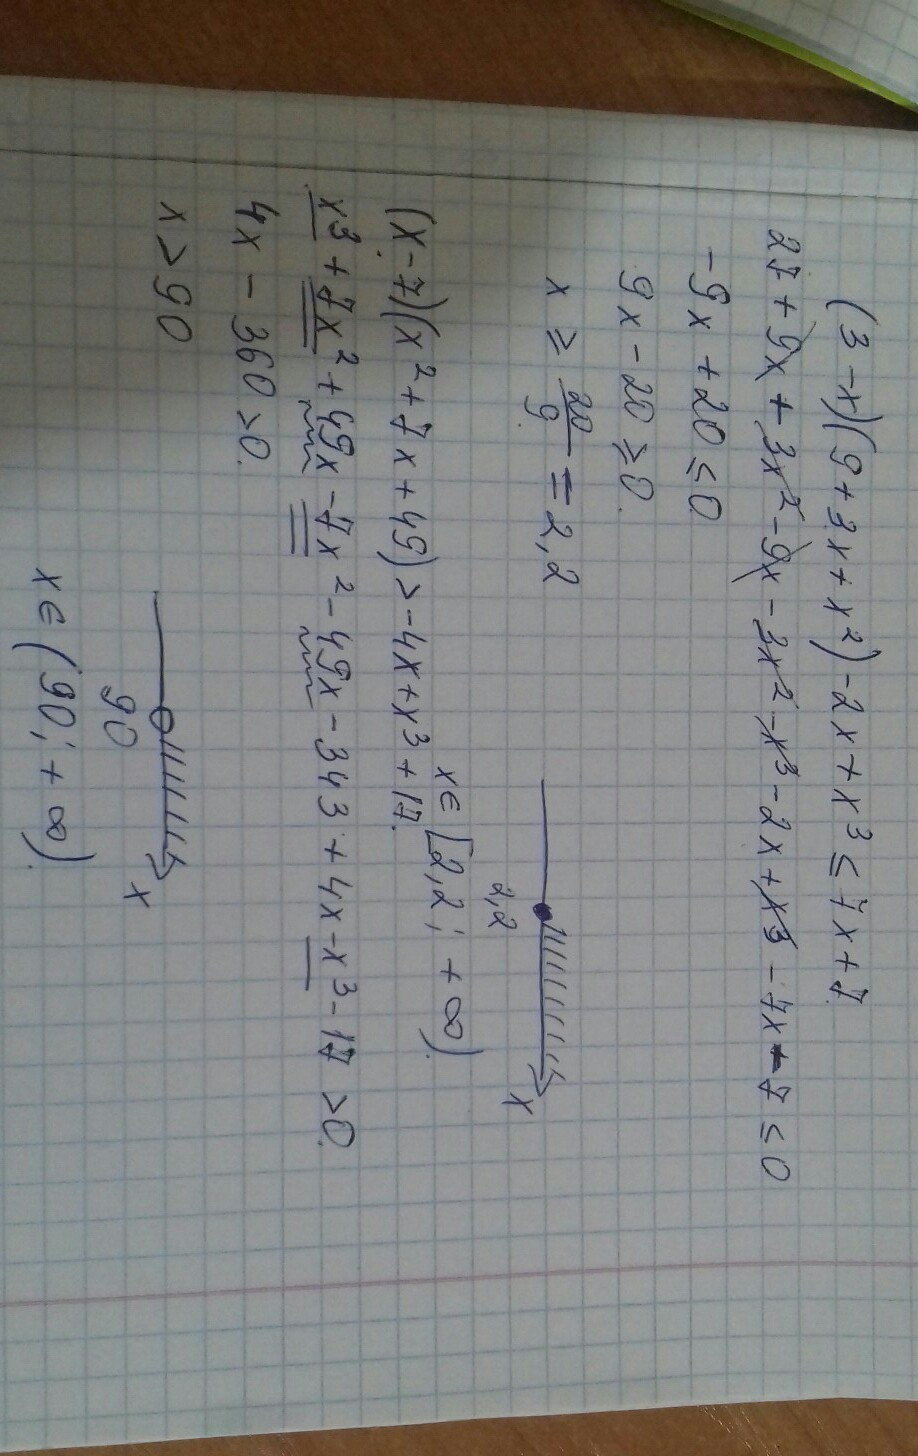 (3-x)(9+3x+x²)-2x+x³≤7x+7.
27+9x+3x²-9x-3x²-x³-2x+x³-7x-7≤0
-9x+20≤0
9x-20≥0.
x≥20/9=2,2
2,2 x
x∈[2,2; +∞).
(x-7)(x²+7x+49)>-4x+x³+17.
x³+7x²+49x-7x²-49x-343+4x-x³-17>0.
4x-360>0.
x>90
90 x
x∈(90; +∞).